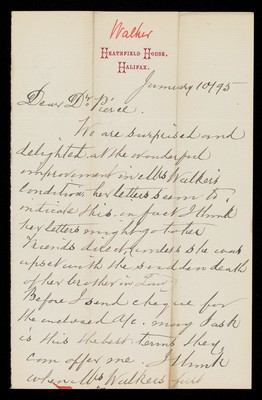 Walker
HEATHFIELD HOUSE,
HALIFAX.
January 10/95
Dear Dr. Pierce.
We are surprised and
delighted at the wonderful
improvement in Mrs Walker's
condition, her letters seem to
indicate this, in fact I think
her letters might go to her
Friends direct, unless she was
upset with the sudden death
of her brother in Law
Before I send cheque for
the enclosed A/c. may I ask
is this the best terms they
can offer me. I think
when Mrs Walkers first